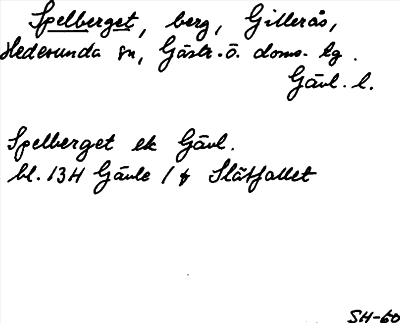 Spelberget, berg, Gillerås,
Hedesunda sn, Gästr. ö. doms. hg.
Gävl. l.
Spelberget ek Gävl.
bl. 13H Gävle / f Slätfallet
SH-60